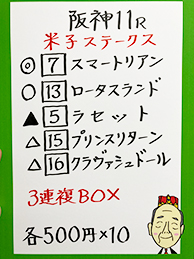 阪神11R
米子ステークス
◎ 7 スマートリアン
○ 13 ロータスランド
▲ 5 ラセット
△ 15 プリンスリターン
△ 16 クラヴァシュドール
3連複BOX
各500円×10